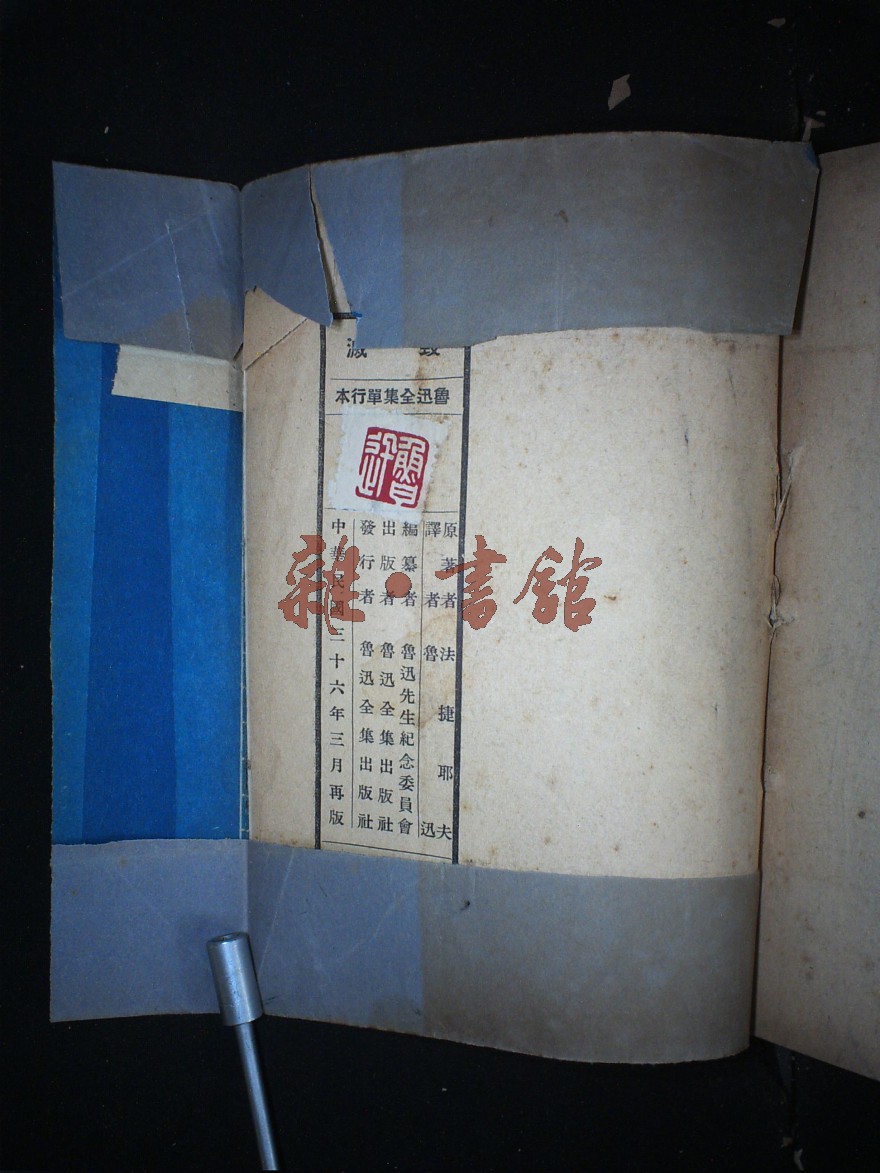 毀滅
魯迅全集單行本
魯迅
原著者 法捷耶夫
譯者 魯迅
編纂者 魯迅先生紀念委員會
出版者 魯迅全集出版社
發行者 魯迅全集出版社
中華民國三十六年三月再版
雜·書館